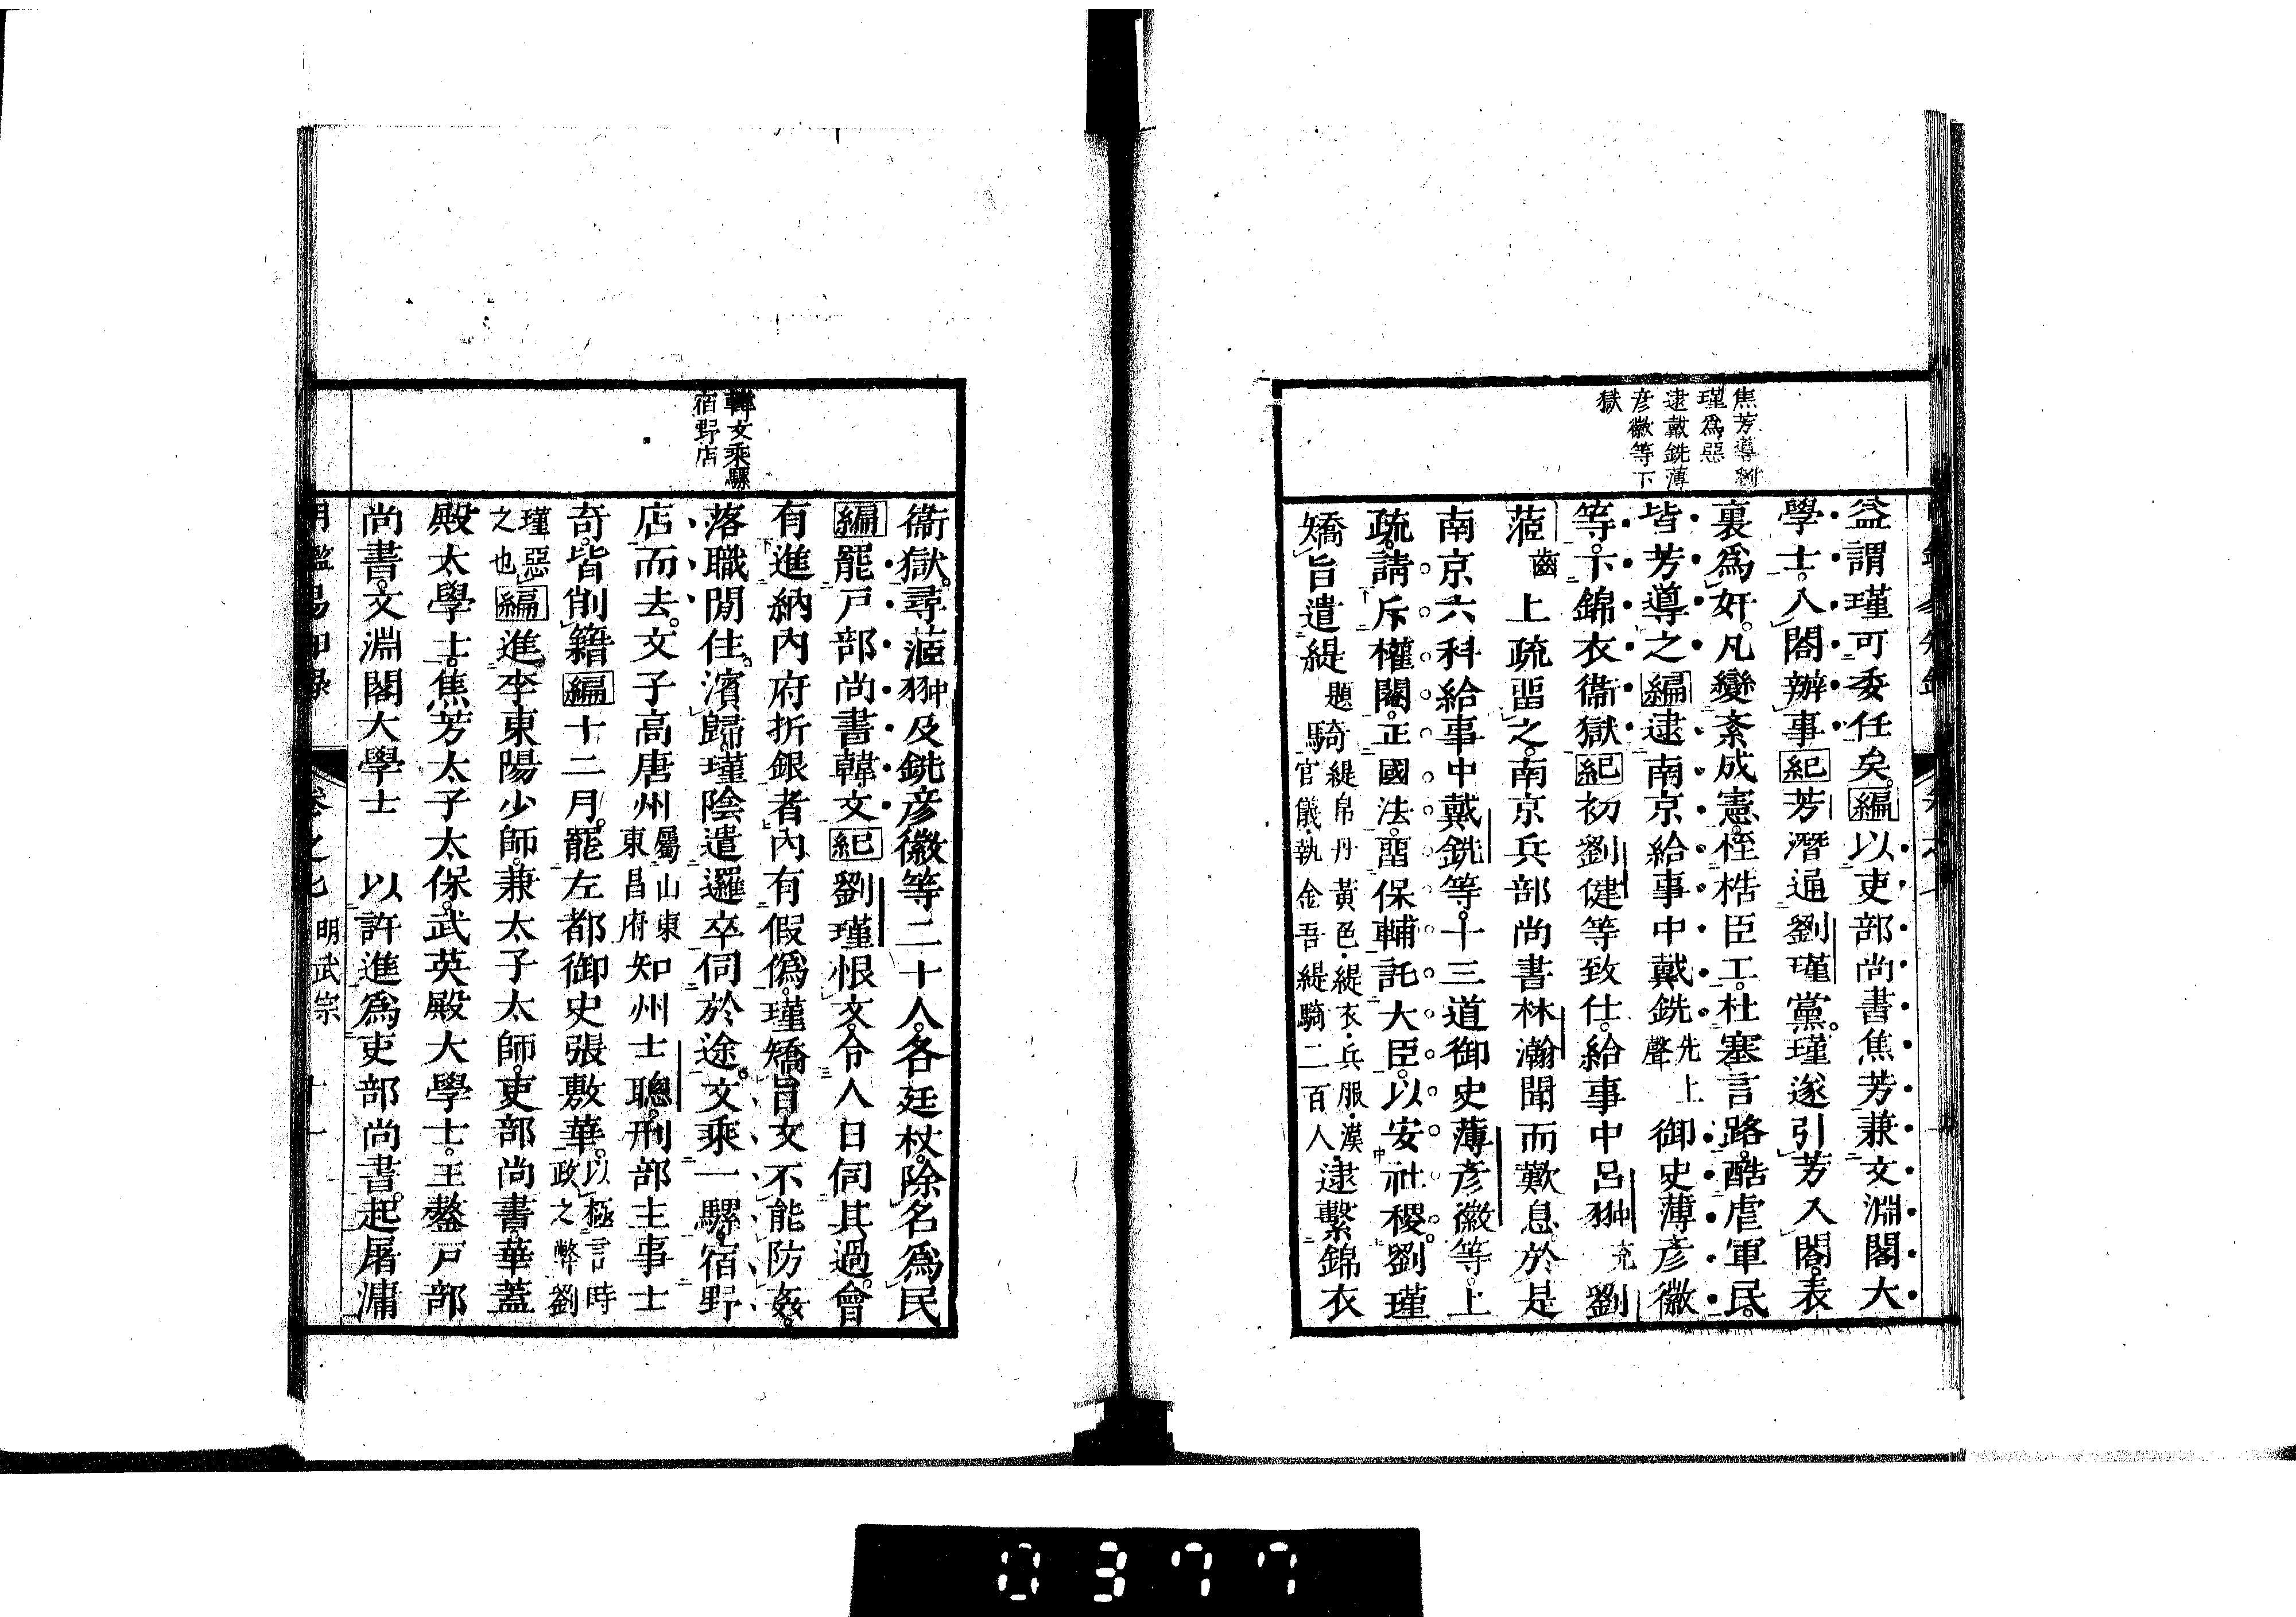 焦芳導劉
瑾爲惡
逮戴銑薄
彥徽等下
獄
益謂瑾可委任矣。編以吏部尚書焦芳兼文淵閣大
學士。入閣辦事紀芳潛通劉瑾黨。瑾遂引芳入閣。表
裏爲奸。凡變紊成憲。桎梏臣工。杜塞言路。酷虐軍民。
皆芳導之編逮南京給事中戴銑先上聲御史薄彥徽
等。下錦衣衞獄紀初劉健等致仕。給事中呂翀充劉
菃齒上疏畱之。南京兵部尚書林瀚聞而歎息。於是
南京六科給事中戴銑等。十三道御史薄彥徽等。上
疏。請斥權閹。正國法。畱保輔託大臣。以安社稷。劉瑾
矯旨遣緹題騎緹帛丹黃色緹衣兵服漢官儀執金吾緹騎二百人逮繫錦衣
韓文乘騾
宿野店
衞獄。尋菃翀及銑彥徽等二十人。各廷杖。除名爲民
編罷戸部尚書韓文紀劉瑾恨文。令人日伺其過。會
有進納內府折銀者。內有假僞。瑾矯旨文不能防姦。
落職閒住。濱歸。瑾陰遣邏卒伺於途。文乘一騾。宿野
店而去。文子高唐州屬山東東昌府知州士聰。刑部主事士
奇。皆削籍編十二月。罷左都御史張敷華。以極言時政之弊劉
瑾惡之也編進李東陽少師。兼太子太師。吏部尚書。華蓋
殿太學士。焦芳太子太保。武英殿大學士。王鏊戸部
尚書。文淵閣大學士 以許進爲吏部尚書。起屠滽
卷之七 明武宗 十一